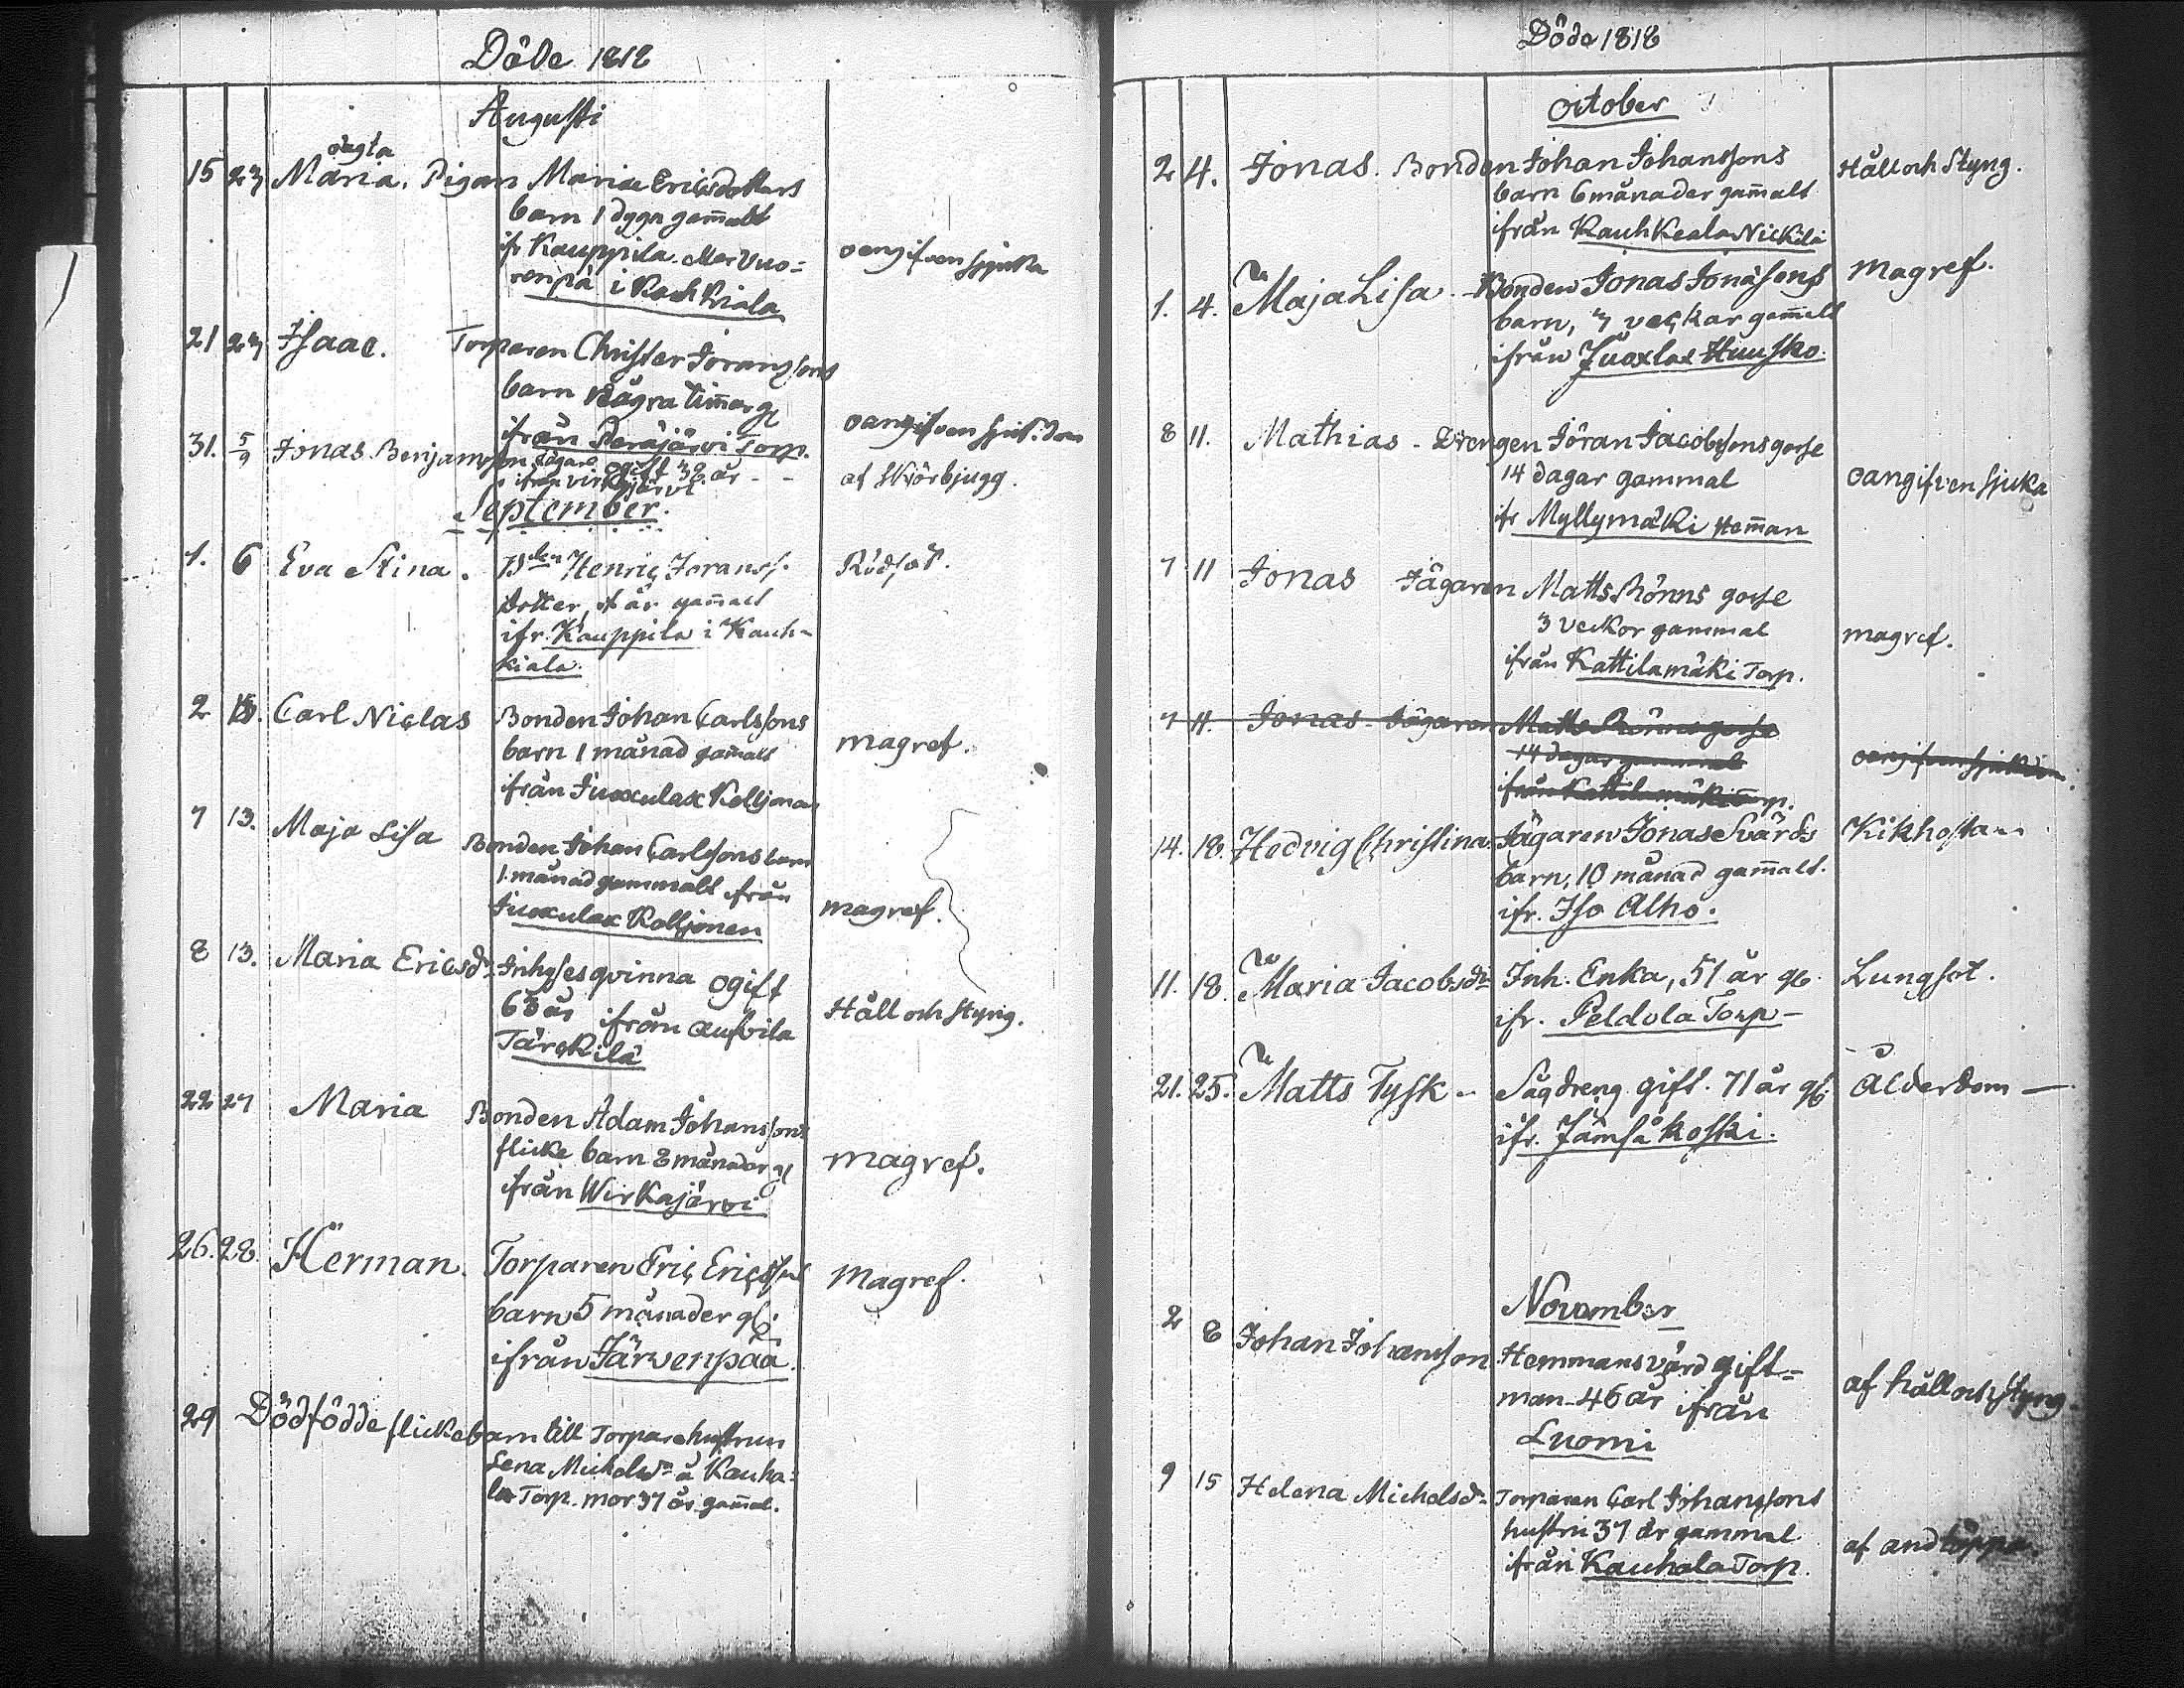 Döde 1818
Augusti
oägta
15 23 Maria. Pigan Maria Ericsdotters
barn 1 dygn gam̄alt
ifr Kauppila Mervuo=
renpä i Kauhkiala
oangifven sjuka
21 23 Isaac. Torparen Christer Joranssons
barn några tim̄ar gl
ifrån Peräjärvi Torp.
oangifven sjukdom
31. 5/9 Jonas Benjamsson Jägare ogift 38 år - -
ifrån virkajärvi
af Skjörbjugg.
September.
1. 6 Eva Stina. Bden Henric Joranss.
Rödsot.
dotter, år gam̄alt
ifr. Kauppila i Kauh-
kiala.
2 13. Carl Niclas Bonden Johan Carlssons
barn 1 månad gam̄alt
magref.
från Juoxulax Kolljonen
7 13. Maja Lisa Bonden Johan Carlssons barn
1. månad gammalt ifrån
Juoxulax Kolljonen
magref.
8 13. Maria Ericsdr Inhysesqvinna ogift
68 år ifrån Aufvila
Tärckilä
Håll och styng.
22 27 Maria Bonden Adam Johanssons
flicke barn 8 månader gl
ifrån Wirkajärvi
magref.
26. 28. Herman. Torparen Eric Ericssons
barn 5 månader gl.
ifrån Järwenpää.
Magref.
29 Dödfödde flickebarn till Torparehustrun
Lena Mickelsdr å Kauha=
la Torp. mor 37 år gam̄al.
Döda 1818
October
2 4. Jonas. Bonden Johan Johanssons
barn 6 månader gam̄alt
ifrån Kauhkeala Nickilä
Håll och Styng.
1. 4. Maja Lisa. Bonden Jonas Jonassons
barn, 3 veckar gam̄alt
ifrån Juoxlax Huusko.
Magref.
8 11. Mathias - Drengen Jöran Jacobssons gosse
14 dagar gammal
ifr Myllymäki Hem̄an
oangifven sjuka
7 11 Jonas Jägaren Matts Rönns gosse
3 veckor gammal
ifrån Kattilamäki Torp.
magref.
7 11. Jonas Jägaren Matts Rönns gosse
14 dagar gammal
ifrån Kattilamäki Torp.
oangifven sjukdom
14. 18. Hedvig Christina. Jägaren Jonas Svärds
barn, 10 månad gam̄alt.
ifr. Iso Alho.
Kikhosta
11. 18. Maria Jacobsdr Inh. Enka, 51 år gl.
ifr. Peldola Torp -
Lungsot.
21. 25. Matts Tysk - Sågdreng gift. 71 år gl.
ifr. Jämsäkoski.
Ålderdom -
November
2 8 Johan Johansson Hemmansvärd gift=
man 46 år ifrån
Luomi
af håll och Styng.
9 15 Helena Mickelsdr Torparen Carl Johanssons
hustru 37 år gammal
ifrån Kauhala Torp.
af andtäppa